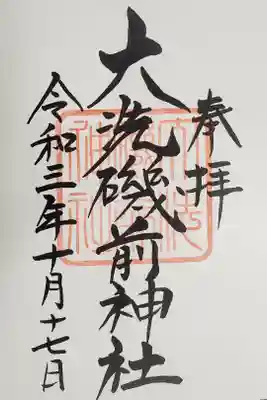 奉拝
大洗磯前神社
令和三年十月十七日